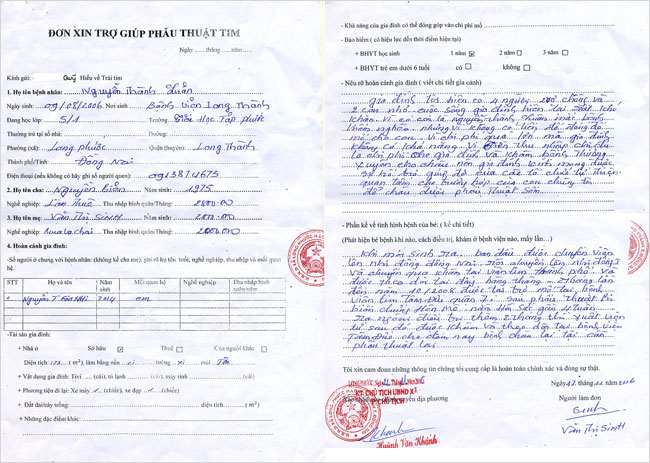 ĐƠN XIN TRỢ GIÚP PHẪU THUẬT TIM
Ngày ...... tháng ...... năm......
Kính gửi: Quỹ Hiểu về Trái tim
1. Họ tên bệnh nhân: Nguyễn Thành
Ngày sinh: 09/08/2006. Nơi sinh Bệnh viện Long Thành
Đang học lớp: 5/1 Trường: Tiểu Học Tập Phước
Thường trú tại số nhà:
Phường (xã): Long phước Quận (huyện): Long Thành
Thành phố/Tỉnh: Đồng Nai
Điện thoại (nếu không có hãy ghi số người quen):
2. Họ tên cha: Nguyễn Năm sinh: 1975
Nghề nghiệp: Làm Thuê Thu nhập bình quân/tháng:
3. Họ tên mẹ: Văn Thị Sinh Năm sinh:
Nghề nghiệp: Thu nhập bình quân/tháng: 2000.000
4. Hoàn cảnh gia đình:
-Số người ở chung với bệnh nhân: (không kể cha mẹ), ghi rõ họ tên. tuổi, nghề nghiệp, thu nhập và mối quan hệ.
STT Họ và tên Năm sinh Mối quan hệ Nghề nghiệp Thu nhập bình quân/năm
1 Nguyễn T 2014 em
-Tài sản gia đình:
+ Nhà ở Sở hữu Thuê Của người khác
Diện tích: (m2), làm bằng nền xi tường xi mái Tôn
+ Vật dụng gia đình: Tivi (cái), tủ lạnh (cái), máy tính (cái)
+ Phương tiện đi lại: Xe máy 1 (chiếc), xe đạp (chiếc)
+ Đất đai/cây trồng: diện tích (m2)
+ Những đặc điểm khác:
- Khả năng của gia đình có thể đóng góp vào chi phí mổ
- Bảo hiểm (có hiệu lực đến thời điểm hiện tại)
+ BHYT học sinh 1 năm 2 năm 3 năm
+ BHYT trẻ em dưới 6 tuổi có không
- Nêu rõ hoàn cảnh gia đình ( viết chi tiết gia cảnh)
gia đình tôi hiện có 4 người, vợ chồng và
2 con nhỏ cuộc sống gia đình hiện tại rất khó
khăn vì có con là nguyễn thành mắc bệnh
mổ cho con vì chi phí quá lớn mà gia đình
không có khả năng vì tiền thu nhập chỉ đủ
lo chi phí cho gia đình và khám bệnh thường
xuyên cho cháu nên gia đình tôi mong được
sự trợ giúp đỡ của các tổ chức từ thiện
quan tâm cho trường hợp của con chúng tôi
để cháu được phẫu thuật sớm
-Phần kể về tình hình bệnh của bé: ( kể chi tiết)
(Phát hiện bé bệnh khi nào, cách điều trị, khám ở bệnh viện nào, mấy lần...)
Khi mới sinh ra ban đầu được chuyển viện
lên nhi đồng đồng Nai rồi chuyển lên nhi đồng 1
và chuyển qua khám tại viện tim thành phố và
được theo dõi tại đây hàng tháng
đến năm 10/2008 được tài trợ mổ tại bệnh
viện tim Tâm Đức quận 7. sau phẫu thuật bị
biến chứng hôn mê nằm hồi sức gần 4 tuần
ra ngoài điều trị thêm 2 tháng thì xuất viện
từ sau đó được khám và theo dõi tại bệnh viện
Tâm Đức cho đến nay bệnh cháu lại tái cần
phẫu thuật lại
Tôi xin cam đoan những thông tin chúng tôi cung cấp là hoàn toàn chính xác và đúng sự thật.
Ngày 17 . 11 . 2016
KT. CHỦ TỊCH UBND XÃ
P. CHỦ TỊCH
Người làm đơn
Sinh
Huỳnh Văn Khánh
Văn Thị Sinh